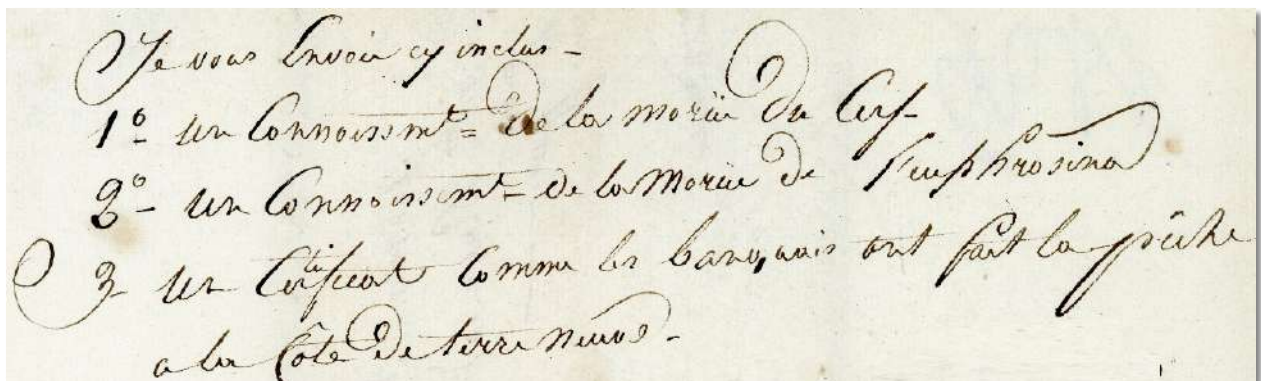 Je vous Envoie cy inclus -
1º un Connoissmt = de la moruë du Cerf -
2º - un Connoissmt = de la Moruë de l'euphrosina
3 - un Certificat Comme les banquais ont fait la pêche
a la Côte de terre Neuve -